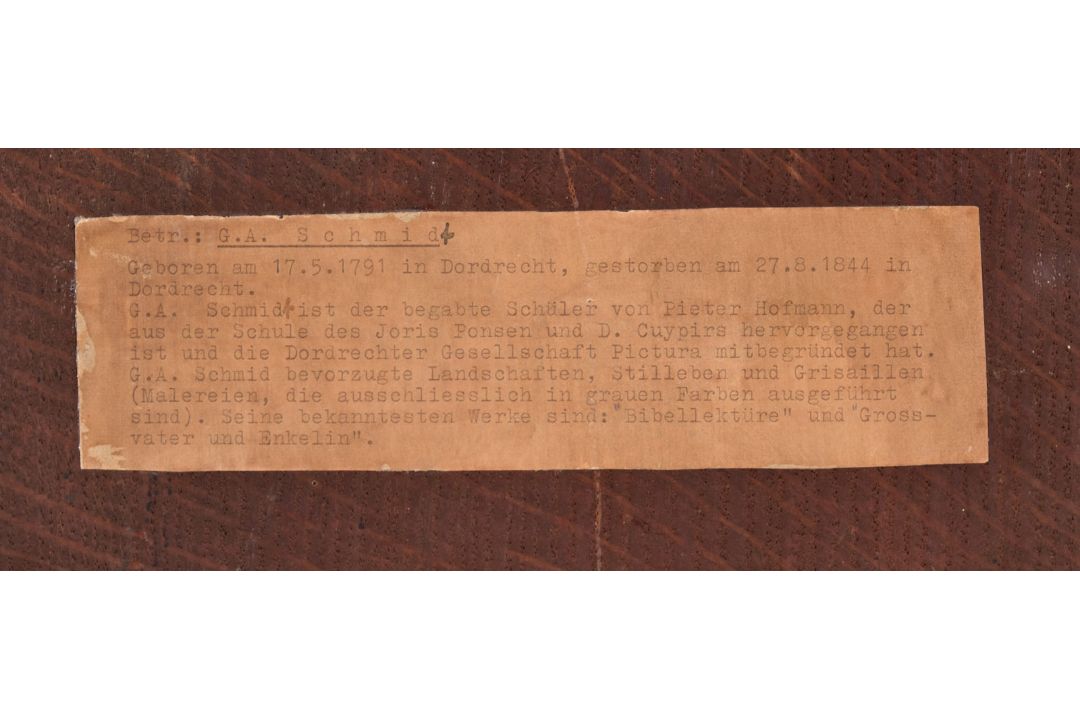 Betr.: G.A. Schmidt
Geboren am 17.5.1791 in Dordrecht, gestorben am 27.8.1844 in
Dordrecht.
G.A. Schmidt ist der begabte Schüler von Pieter Hofmann, der
aus der Schule des Joris Ponsen und D. Cuypirs hervorgegangen
ist und die Dordrechter Gesellschaft Pictura mitbegründet hat.
G.A. Schmid bevorzugte Landschaften, Stilleben und Grisaillen
(Malereien, die ausschliesslich in grauen Farben ausgeführt
sind). Seine bekanntesten Werke sind: "Bibellektüre" und "Gross-
vater und Enkelin".